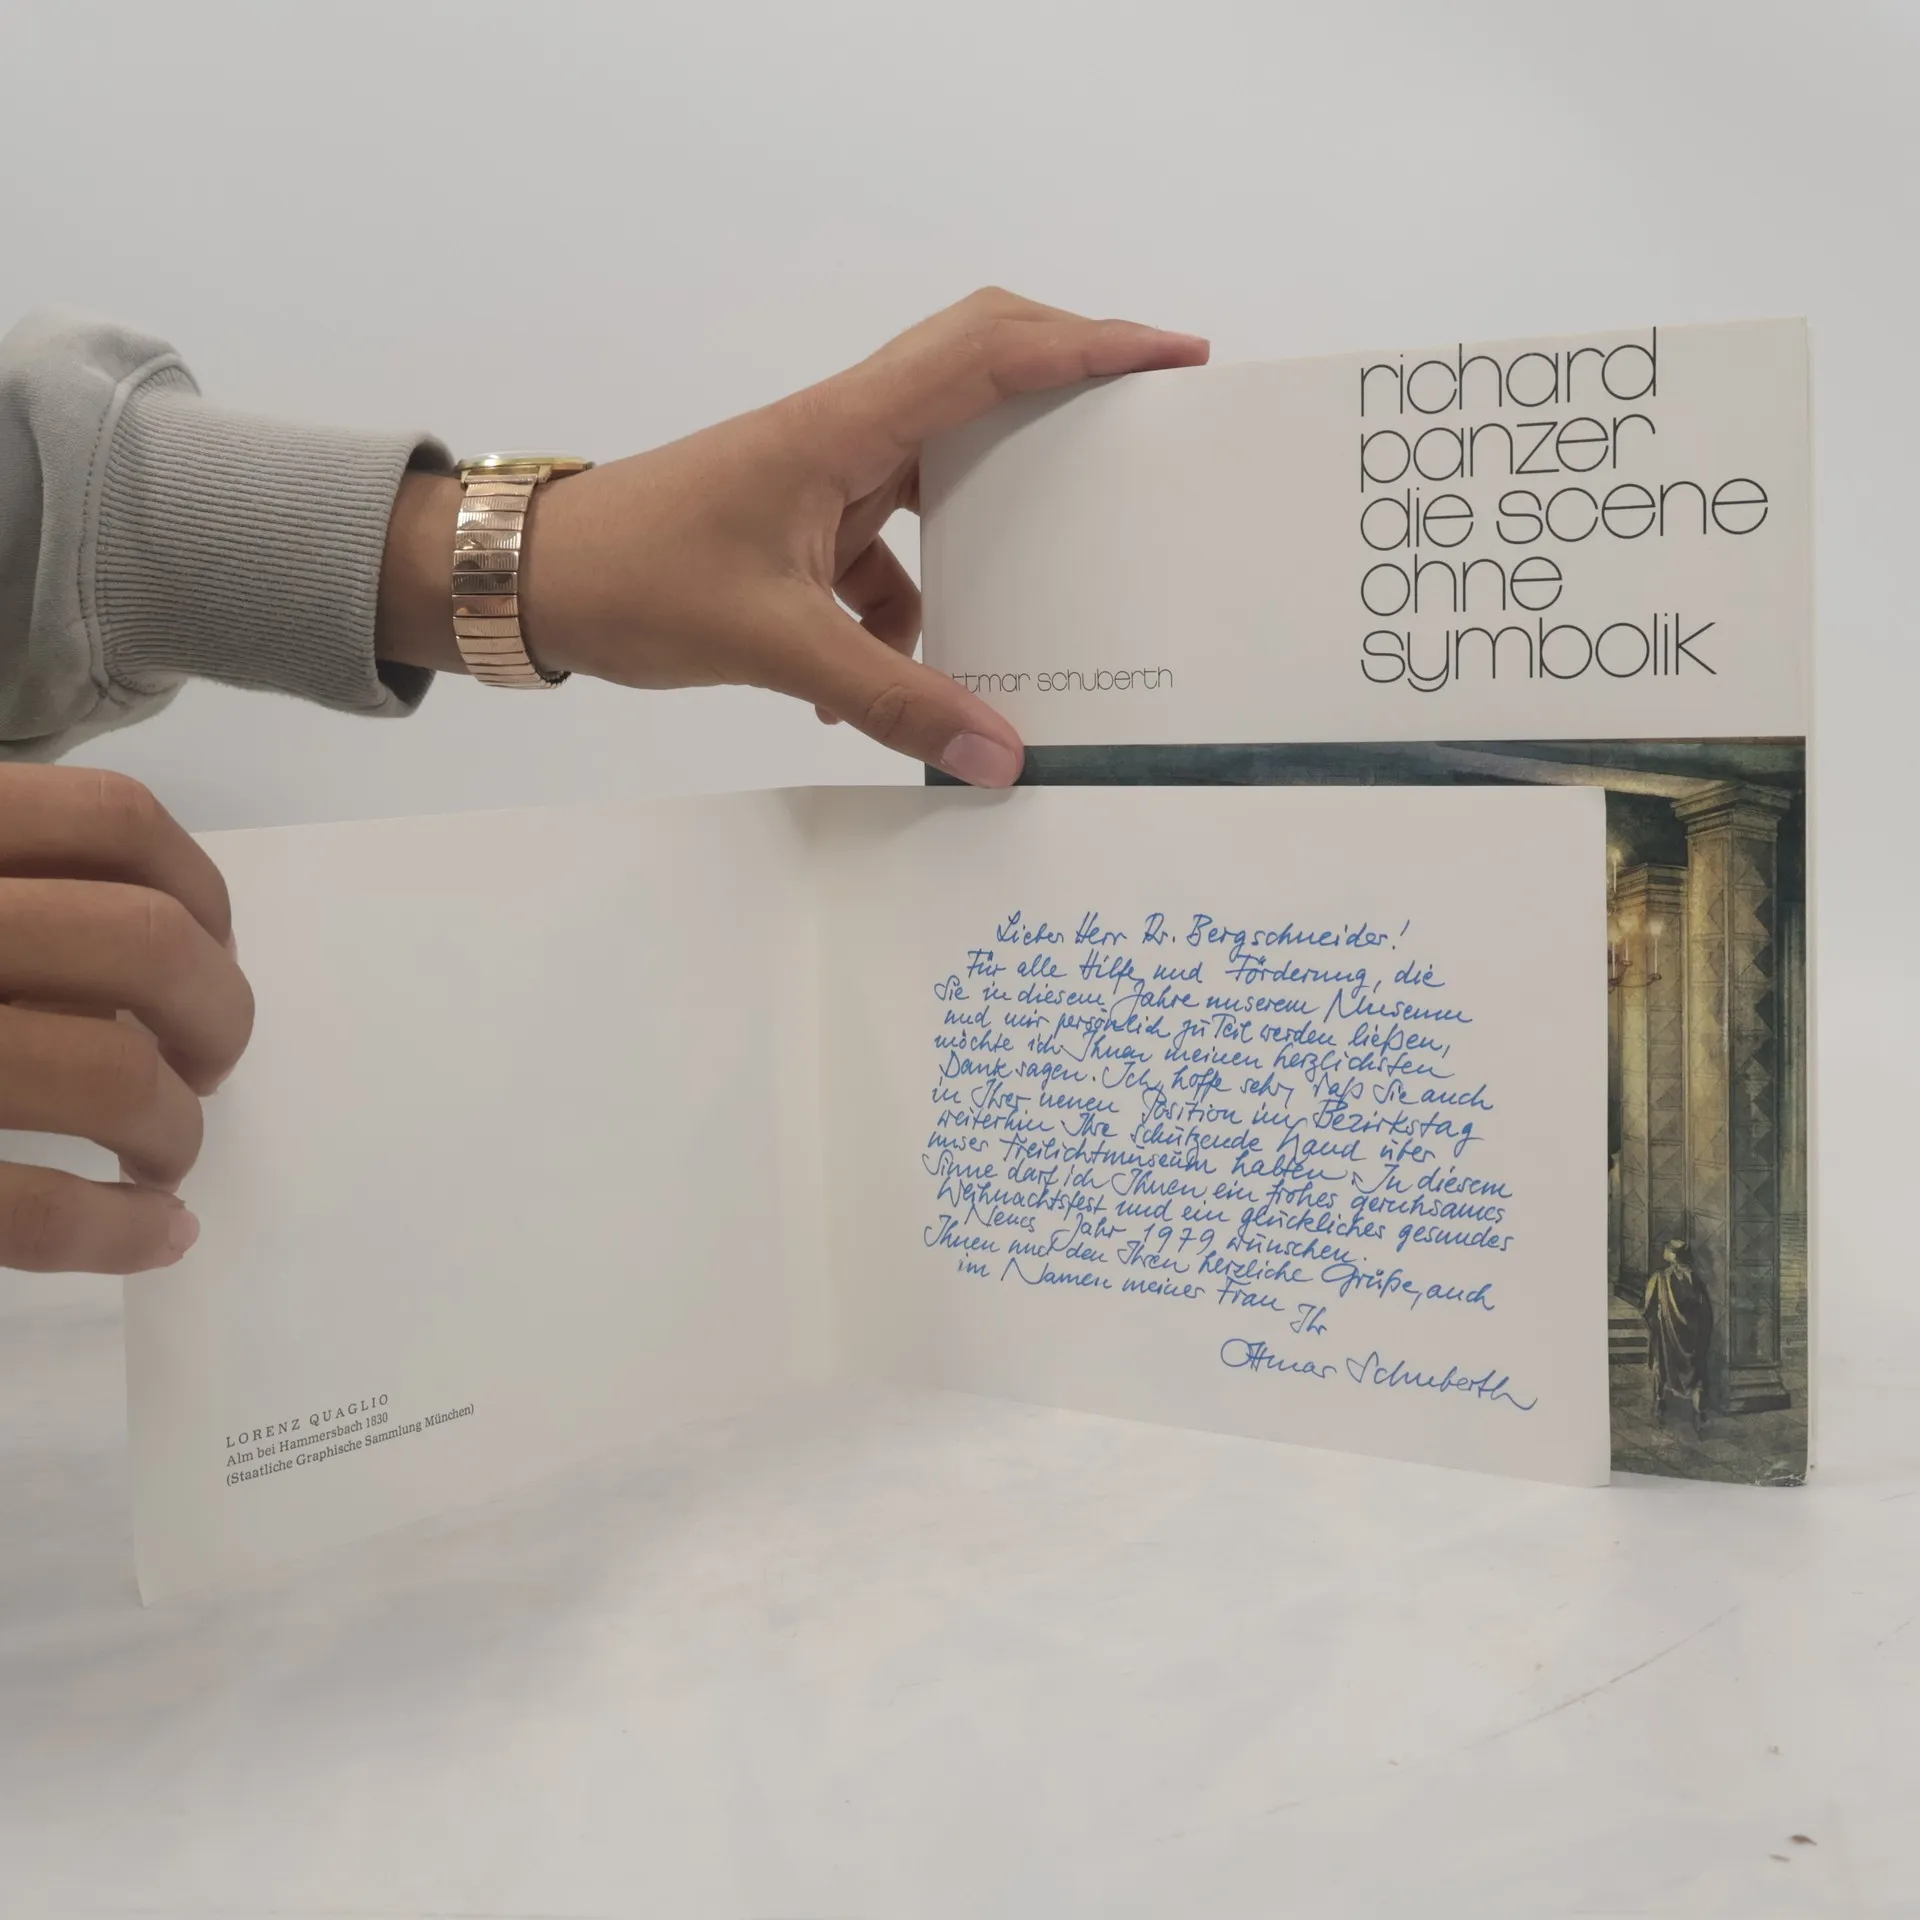 richard
panzer
die scene
ohne
symbolik
ttmar schuberth
Lieber Herr Dr. Bergschneider!
Für alle Hilfe und Förderung, die
Sie in diesem Jahre unserem Museum
und mir persönlich zu Teil werden ließen,
möchte ich Ihnen meinen herzlichsten
Dank sagen. Ich hoffe sehr, daß Sie auch
in Ihrer neuen Position im Bezirkstag
weiterhin Ihre schützende Hand über
unser Freilichtmuseum halten. In diesem
Sinne darf ich Ihnen ein frohes geruhsames
Weihnachtsfest und ein glückliches gesundes
Neues Jahr 1979 wünschen.
Ihnen und den Ihren herzliche Grüße, auch
im Namen meiner Frau
Ihr
Ottmar Schuberth
LORENZ QUAGLIO
Alm bei Hammersbach 1830
(Staatliche Graphische Sammlung München)